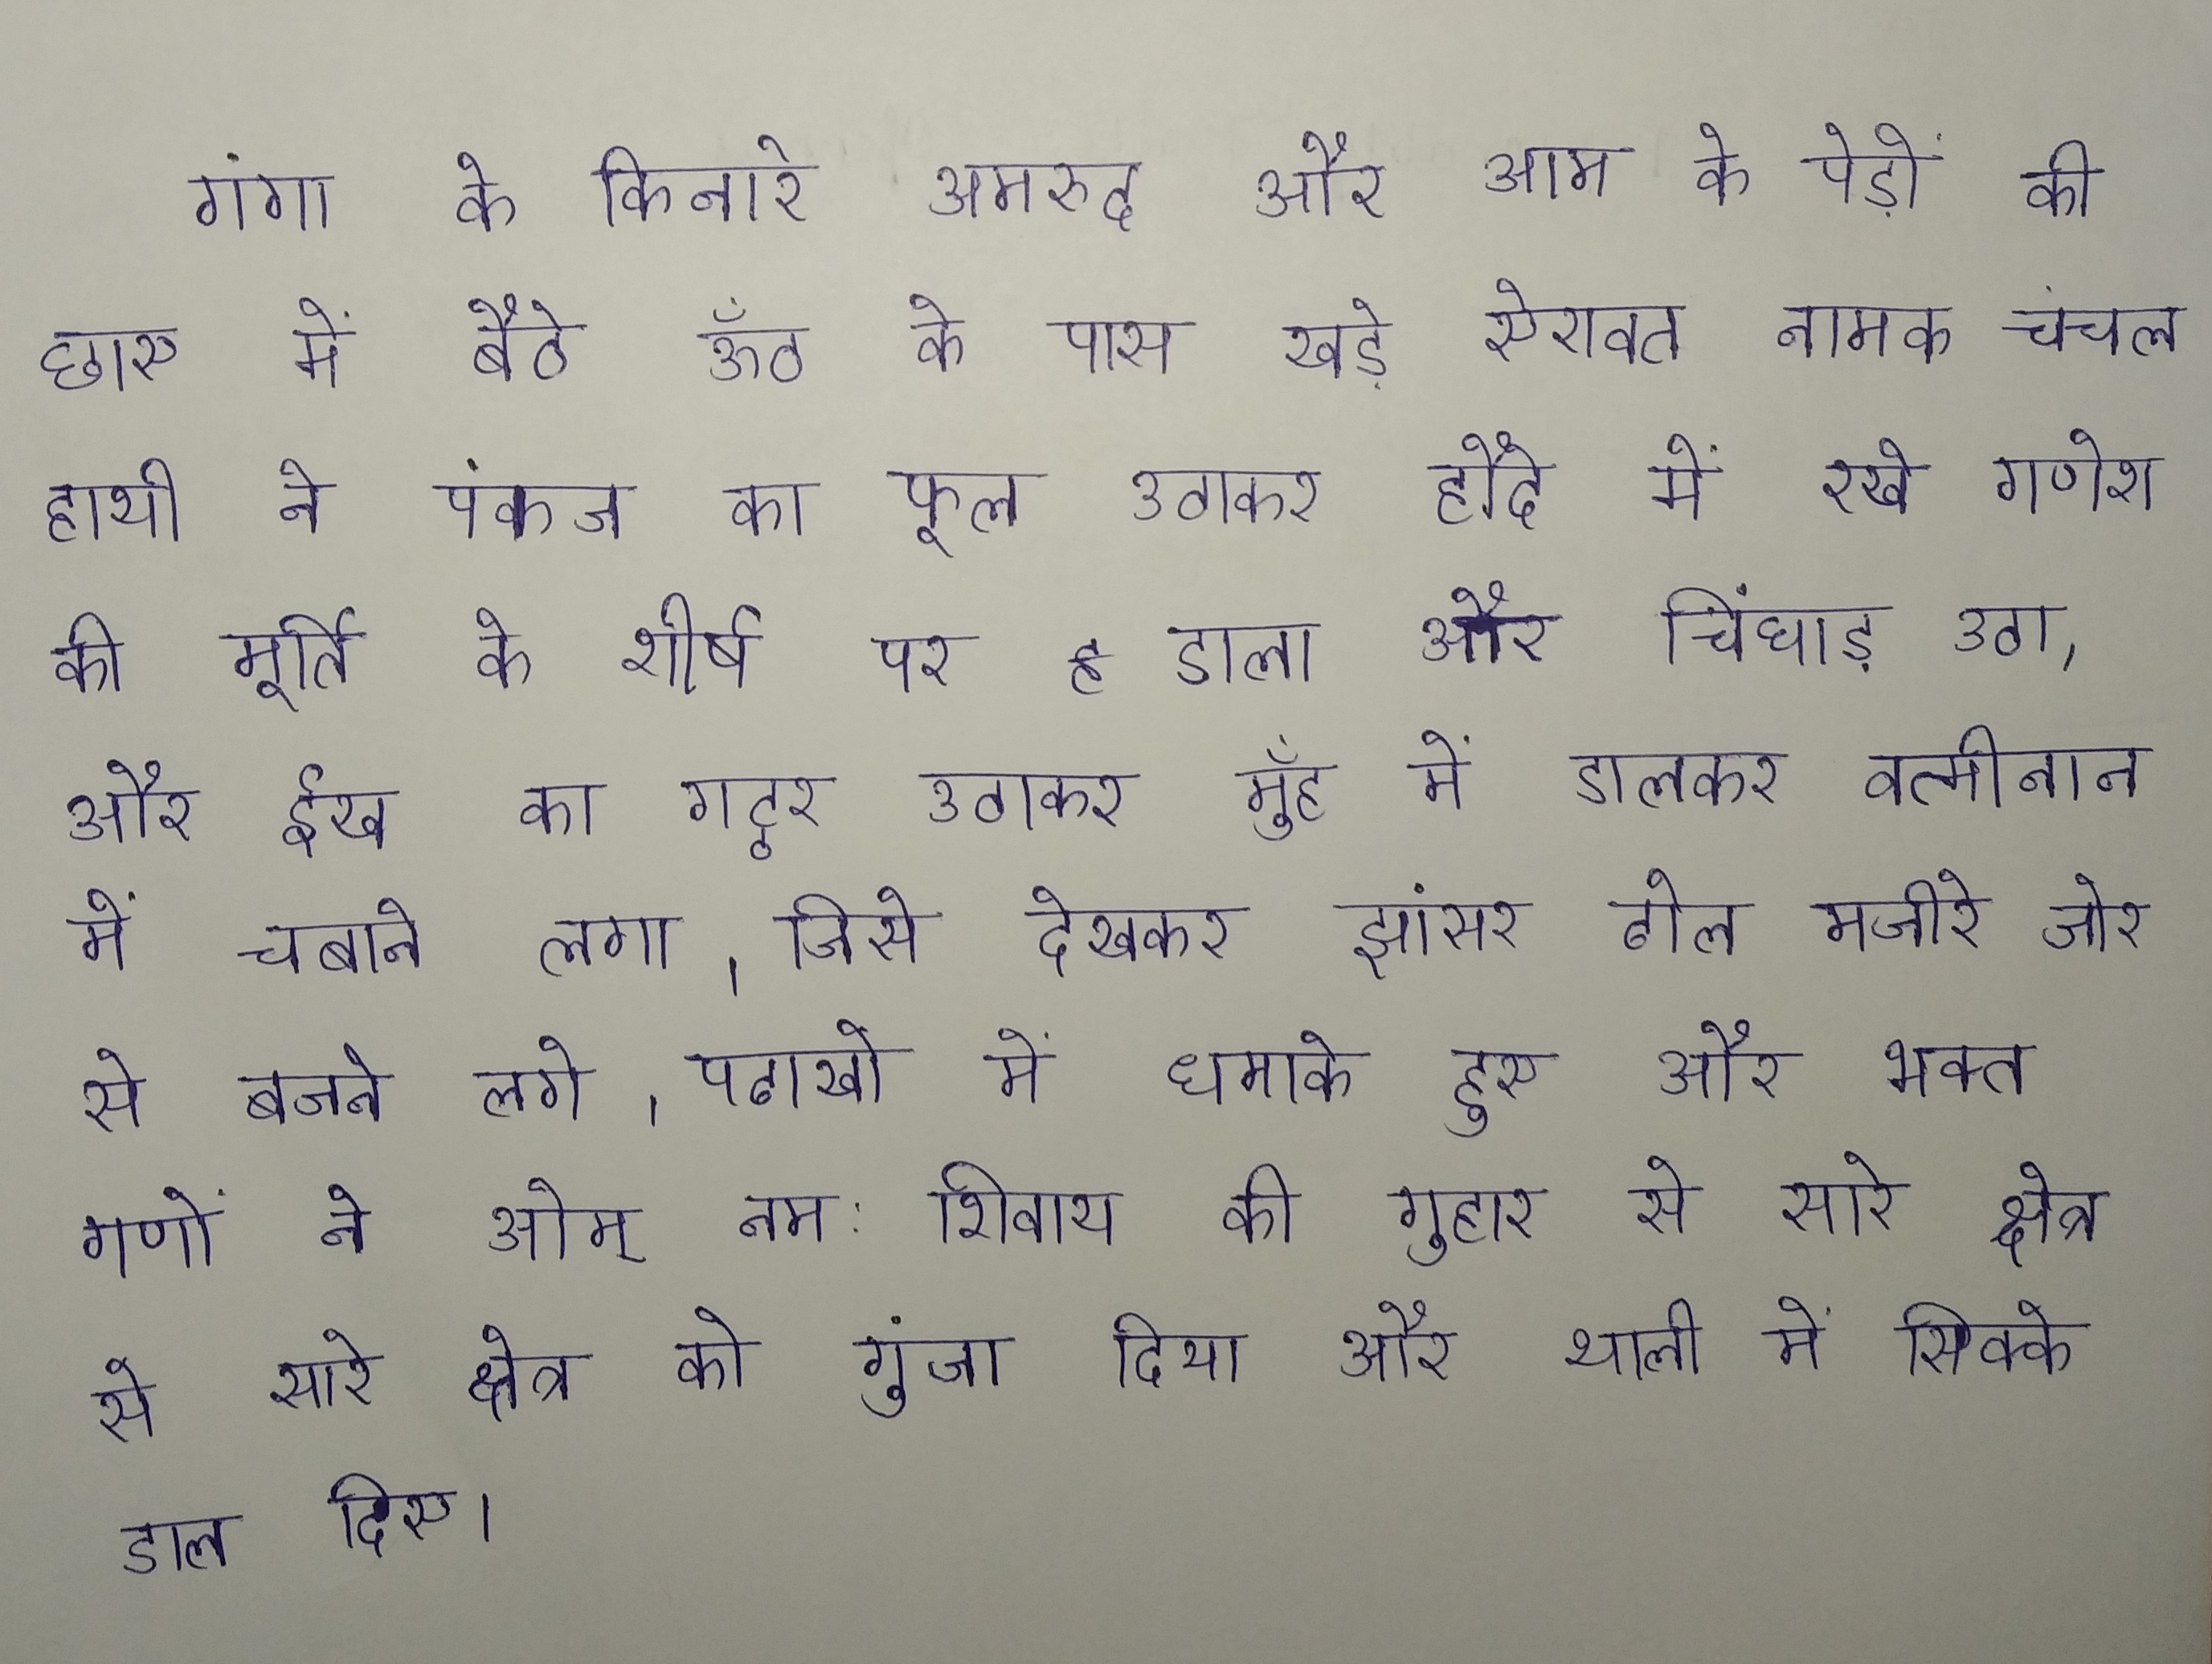 गंगा के किनारे अमरुद और आम के पेड़ों की
छाए में बैठे ऊँठ के पास खड़े ऐरावत नामक चंचल
हाथी ने पंकज का फूल उठाकर हौदे में रखे गणेश
की मूर्ति के शीर्ष पर ह डाला और चिंघाड़ उठा,
और ईख का गट्ठर उठाकर मुँह में डालकर वत्मीनान
में चबाने लगा, जिसे देखकर झांसर ढोल मजीरे जोर
से बजने लगे, पढाखो में धमाके हुए और भक्त
गणों ने ओम् नमः शिवाय की गुहार से सारे क्षेत्र
से सारे क्षेत्र को गुंजा दिया और थाली में सिक्के
डाल दिए।